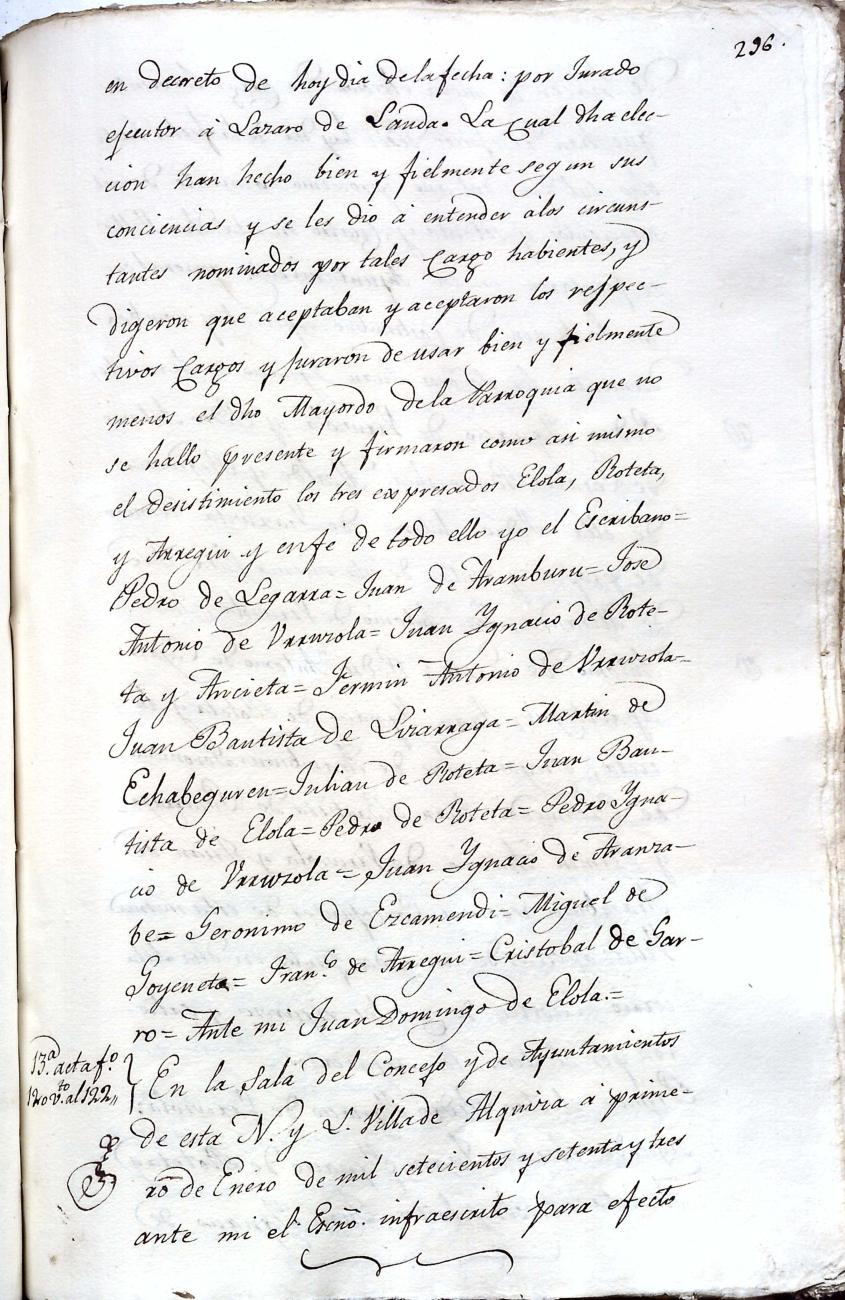 296.
en decreto de hoy dia dela fecha: por Jurado
ejecutor á Lazaro de Landa. La qual dha elec-
cion han hecho bien y fielmente segun sus
conciencias y se les dio á entender álos circuns-
tantes nominados por tales Cargo habientes, y
digeron que aceptaban y aceptaron los respec-
tivos Cargos y juraron de usar bien y fielmente
menos el dho Mayordo dela Parroquia que no
se hallo presente y firmaron como asi mismo
el desistimiento los tres expresados Elola, Roteta,
y Arregui y enfé de todo ello yo el Escribano=
Pedro de Legarra= Juan de Aramburu= Jose
Antonio de Urruzola= Juan Ygnacio de Rote-
ta y Ancieta= Fermin Antonio de Urruzola=
Juan Bautista de Lizarraga= Martin de
Echabeguren= Julian de Roteta= Juan Bau-
tista de Elola= Pedro de Roteta= Pedro Ygna-
cio de Urruzola= Juan Ygnacio de Aranza-
be= Geronimo de Ezcamendi= Miguel de
Goyeneta= Fran.co de Arregui= Cristobal de Gar-
ro= Ante mi Juan Domingo de Elola.=
13.a acta f.o
120 v.to al 122,,
En la sala del Concejo y de Ayuntamientos
de esta N. y L. Villa de Alquiza á prime-
ro de Enero de mil setecientos y setenta y tres
ante mi el Escño. infraescrito para efecto